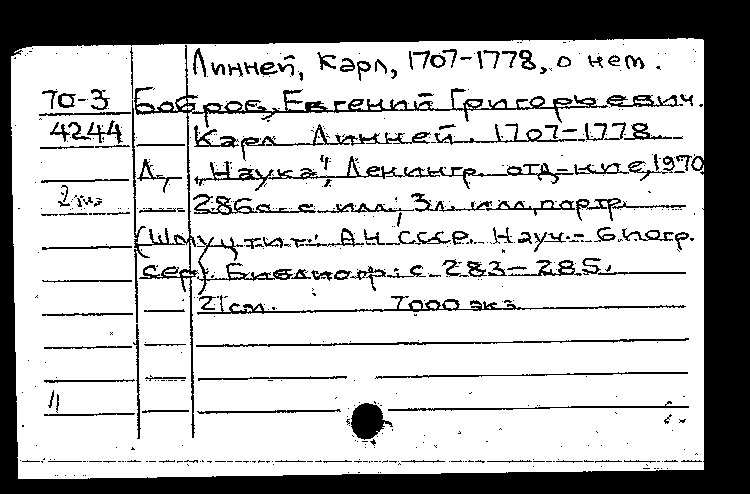 Линней, Карл, 1707-1778, о нем.
70-3 Бобров, Евгений Григорьевич.
4244 Карл Линней. 1707-1778.
Л., „Наука", Ленингр. отд-ние, 1970
286 с. с илл.; 3 л. илл., портр.
(Шмуцтит.: АН СССР. Науч.-биогр.
сер). Библиогр.: с. 283-285.
21 см. 7000 экз.